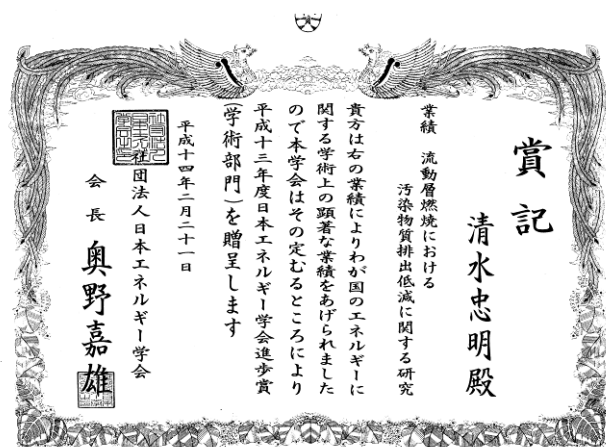 賞記
清水忠明殿
業績 流動層燃焼における
汚染物質排出低減に関する研究
貴方は右の業績によりわが国のエネルギーに
関する学術上の顕著な業績をあげられました
ので本学会はその定むるところにより
平成十三年度日本エネルギー学会進歩賞
(学術部門)を贈呈します
平成十四年二月二十一日
社団法人日本エネルギー学会
会長 奥野嘉雄